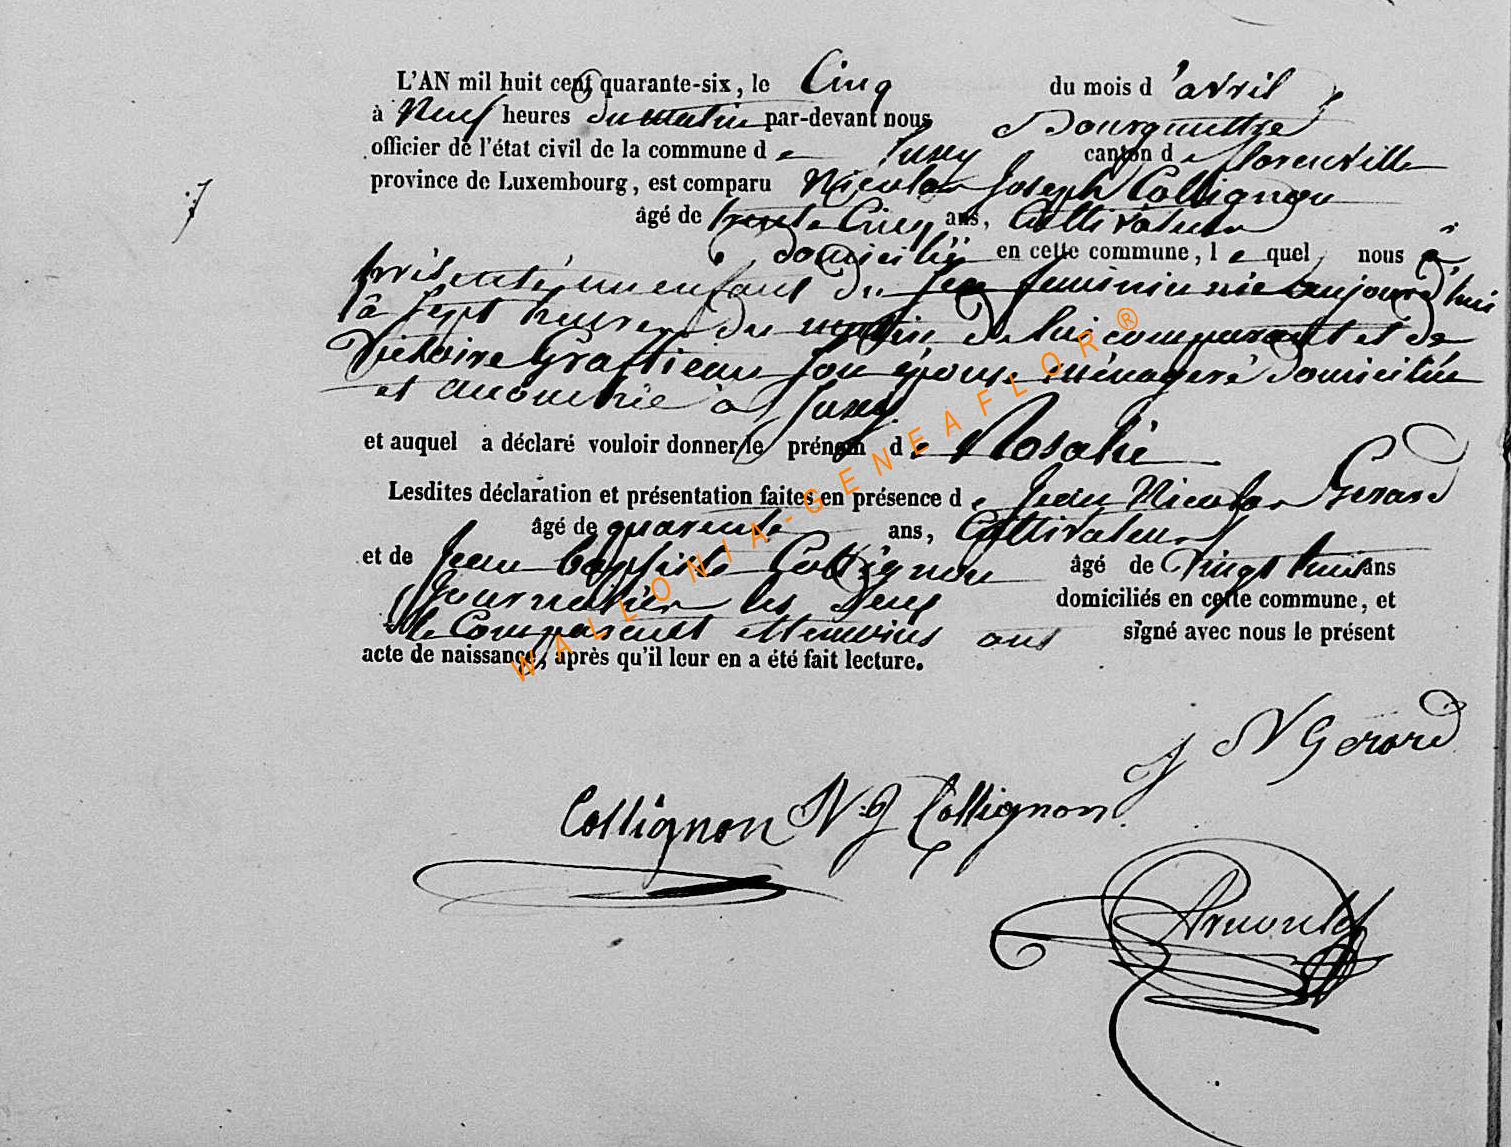 L'AN mil huit cent quarante-six, le Cinq du mois d'avril
à Neuf heures du matin par-devant nous Bourgmettre
officier de l'état civil de la commune de Suxy canton de florenville
province de Luxembourg, est comparu Nicolas Joseph Collignon
âgé de trente Cinq ans, Cultivateur
domicilié en cette commune, lequel nous à
présenté un enfant du sexe feminin née aujourd'hui
à Sept heures du matin de lui comparant et de
Victoire Graftieau son épouse ménagere domiciliée
et accouchée à Suxy
et auquel a déclaré vouloir donner le prénom de Rosalie
Lesdites déclaration et présentation faites en présence de Jean Nicolas Gerard
âgé de quarente ans, Cultivateur
et de Jean Baptiste Collignon âgé de Vingt huit ans
Journalier les deux domiciliés en cette commune, et
le Comparant et temoins ont signé avec nous le présent
acte de naissance, après qu'il leur en a été fait lecture.
J N Gerard
Collignon N.J Collignon
Arnould
7
WALLONIA-GENEAFLOR®